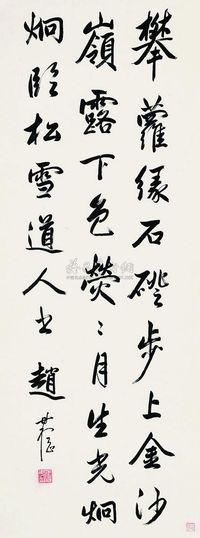 攀蘿緣石磴步上金沙
嶺露下色熒〻月生光炯
炯臨松雪道人書趙